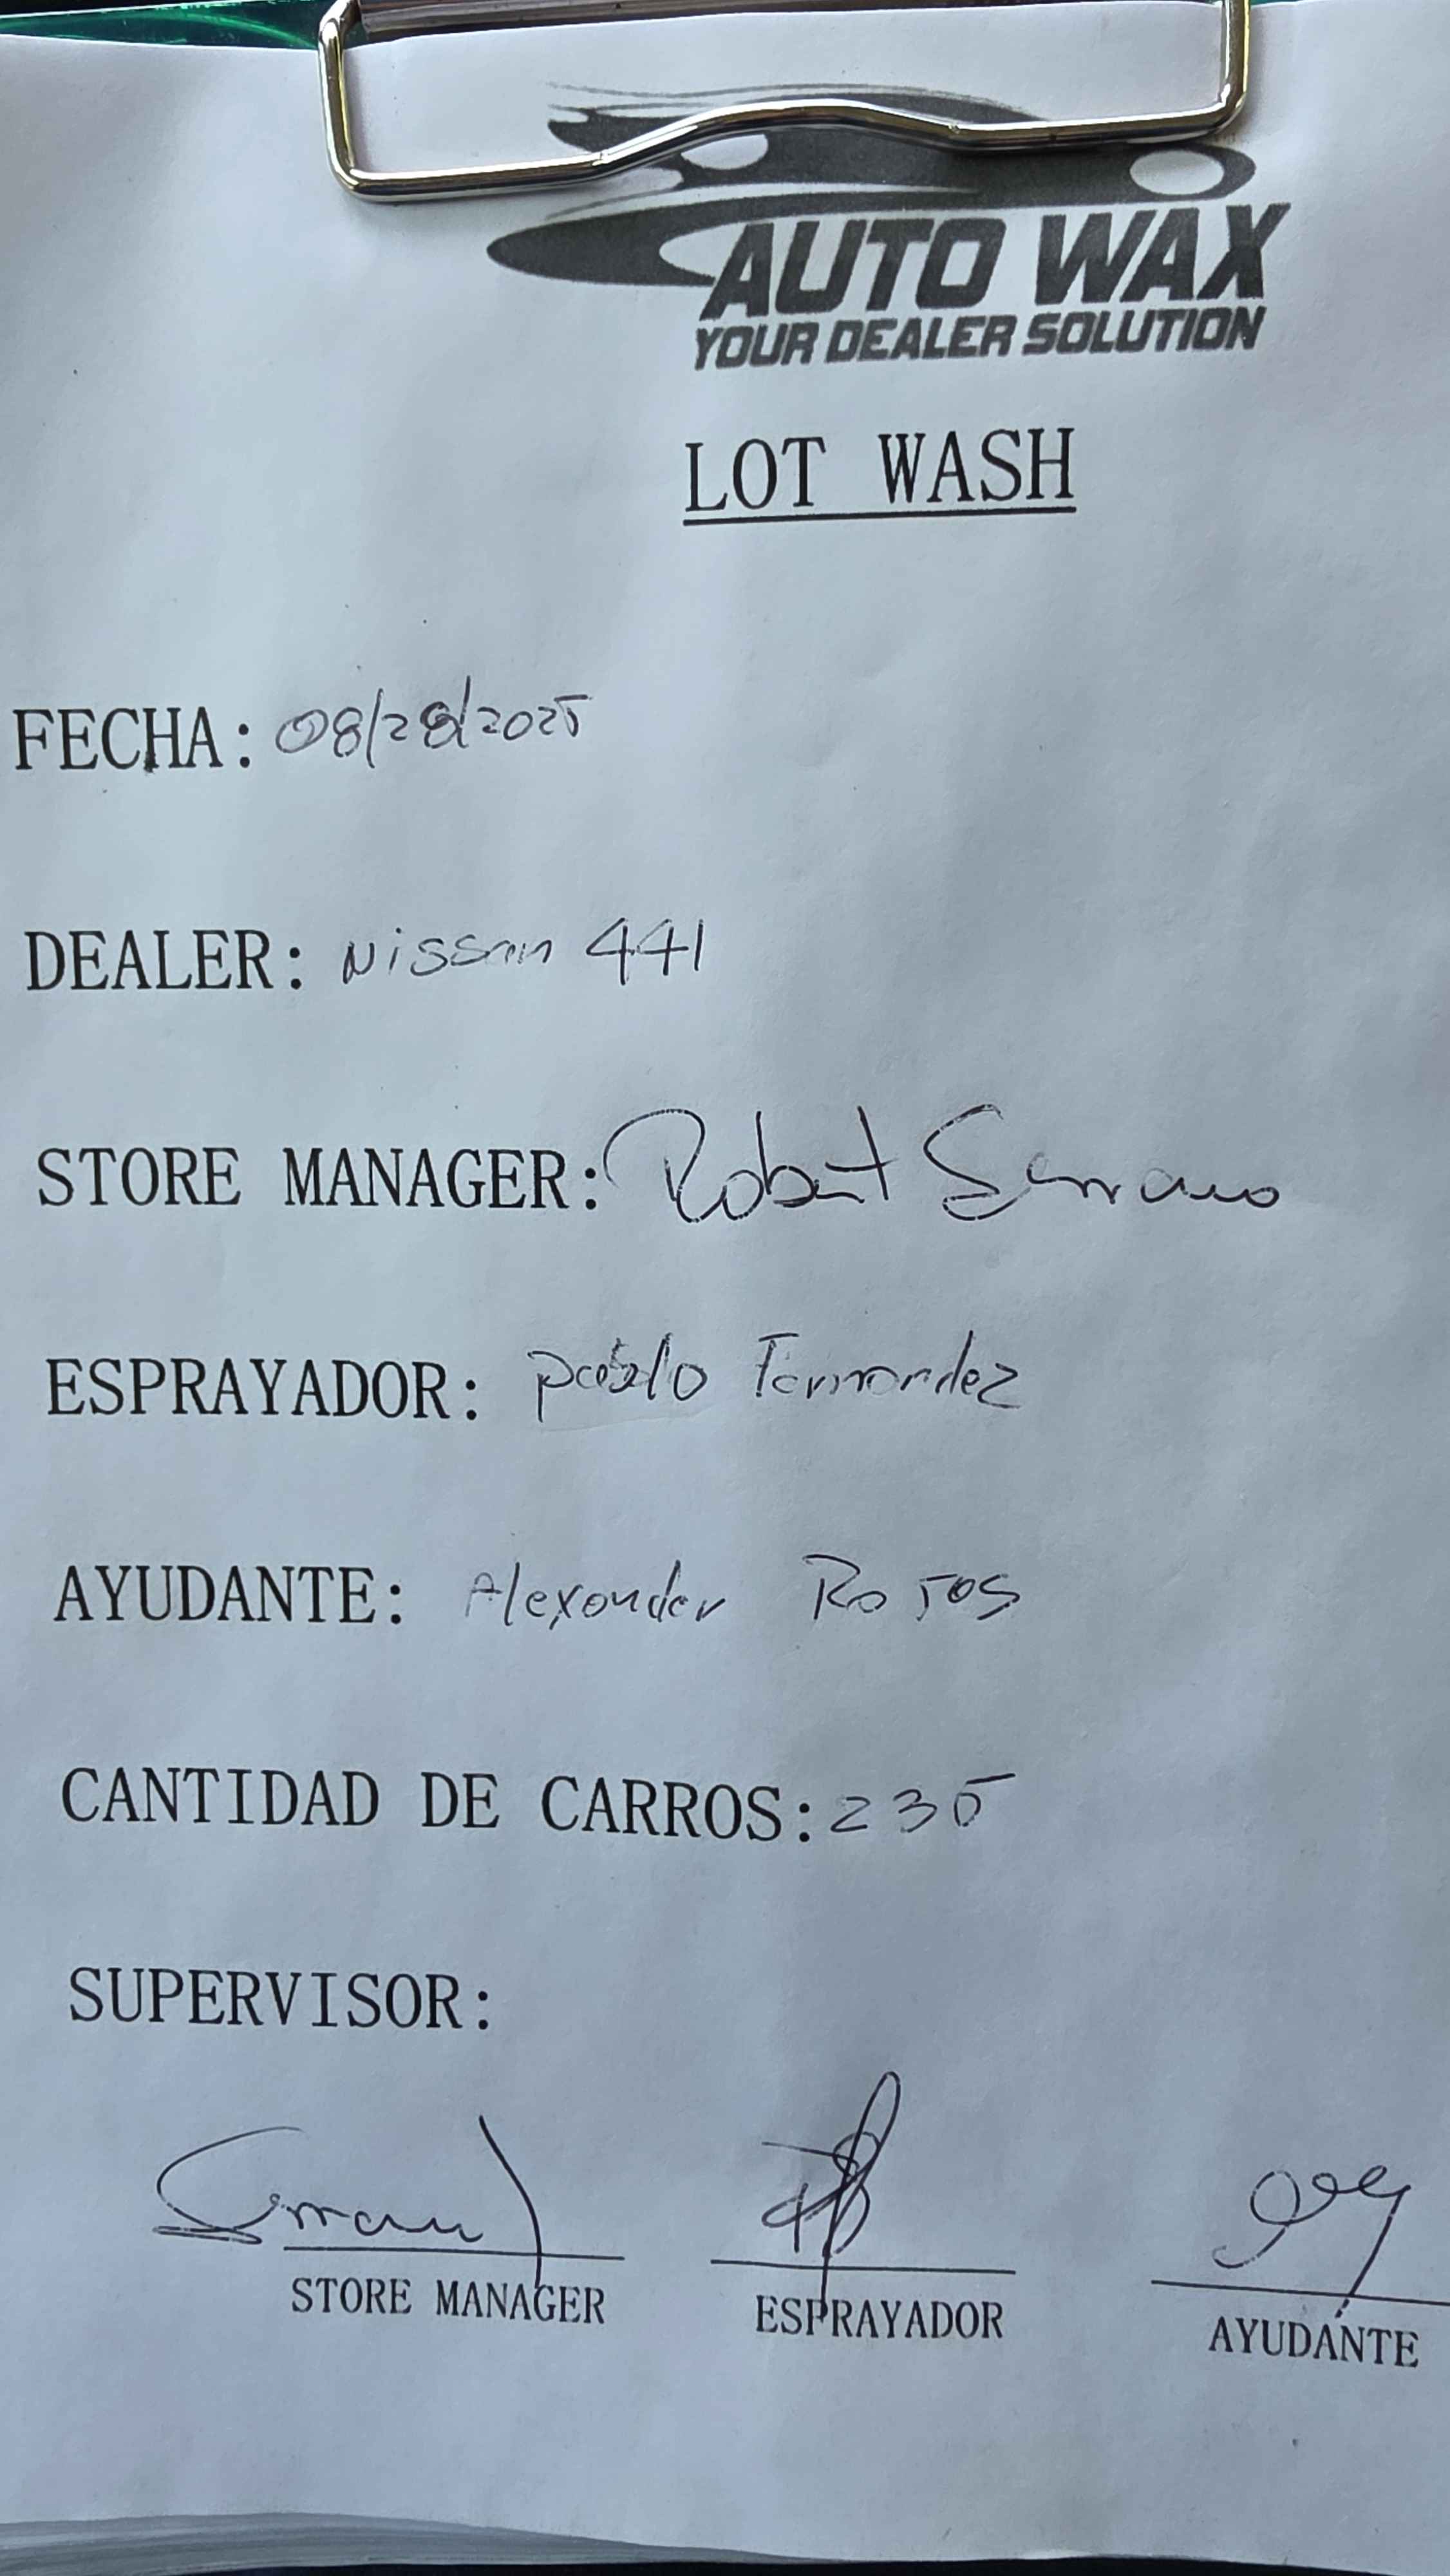 AUTO WAX
YOUR DEALER SOLUTION
LOT WASH
FECHA: 08/28/2025
DEALER: Nissan 441
STORE MANAGER: Robert Serrano
ESPRAYADOR: pablo Fernandez
AYUDANTE: Alexander Rojas
CANTIDAD DE CARROS: 235
SUPERVISOR:
STORE MANAGER ESPRAYADOR AYUDANTE